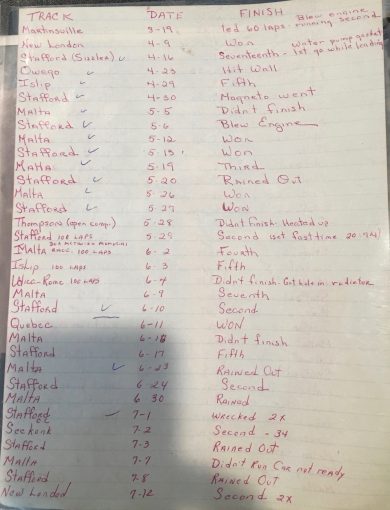 TRACK DATE FINISH
Martinsville 3-19 led 60 laps - Blew engine running second
New London 4-9 Won
Stafford (Sizzler) 4-16 Seventeenth - Water pump gasket let go while leading
Owego 4-23 Hit Wall
Islip 4-29 Fifth
Stafford 4-30 Magneto went
Malta 5-5 Didn't finish
Stafford 5-6 Blew Engine
Malta 5-12 Won
Stafford 5-13 Won
Malta 5-19 Third
Stafford 5-20 Rained Out
Malta 5-26 Won
Stafford 5-27 Won
Thompson (open comp.) 5-28 Didnt finish - Heated up
Stafford 100 LAPS 5-29 Second set fast time 20.74
Malta RACE 100 LAPS 6-2 Fourth
Islip 100 LAPS 6-3 Fifth
Utica-Rome 100 LAPS 6-4 Didn't finish - Got hole in radiator
Malta 6-9 Seventh
Stafford 6-10 Second
Quebec 6-11 WON
Malta 6-16 Didn't finish
Stafford 6-17 Fifth
Malta 6-23 RAINED Out
Stafford 6-24 Second
Malta 6-30 RAINED
Stafford 7-1 Wrecked 2x
Seekonk 7-2 Second - 34
Stafford 7-3 RAINED Out
Malta 7-7 Didn't Run Car not ready
Stafford 7-8 RAINED Out
New London 7-12 Second 2x